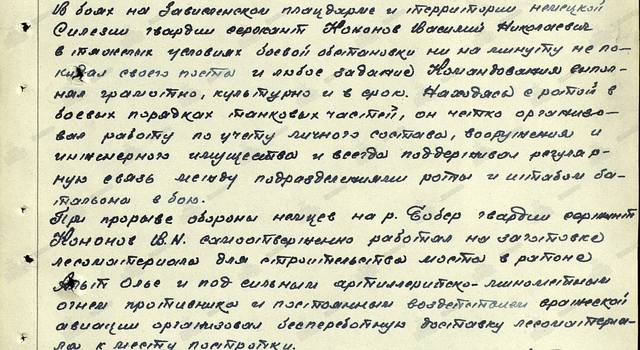 В боях на Завислинском плацдарме и территории немецкой
Силезии гвардии сержант Кононов Василий Николаевич
в тяжелых условиях боевой обстановки ни на минуту не по-
кидал своего поста и любое задание Командования выпол-
нял грамотно, культурно и в срок. Находясь с ротой в
боевых порядках танковых частей, он четко организо-
вал работу по учету личного состава, вооружения и
инженерного имущества и всегда поддерживал регуляр-
ную связь между подразделениями роты и штабом ба-
тальона в бою.
При прорыве обороны немцев на р. Бобер гвардии сержант
Кононов В.Н. самоотверженно работал на заготовке
лесоматериала для строительства моста в районе
Альт Ольс и под сильным артиллерийско-минометным
огнем противника и постоянным воздействием вражеской
авиации организовал бесперебойную доставку лесоматериа-
ла к месту постройки.